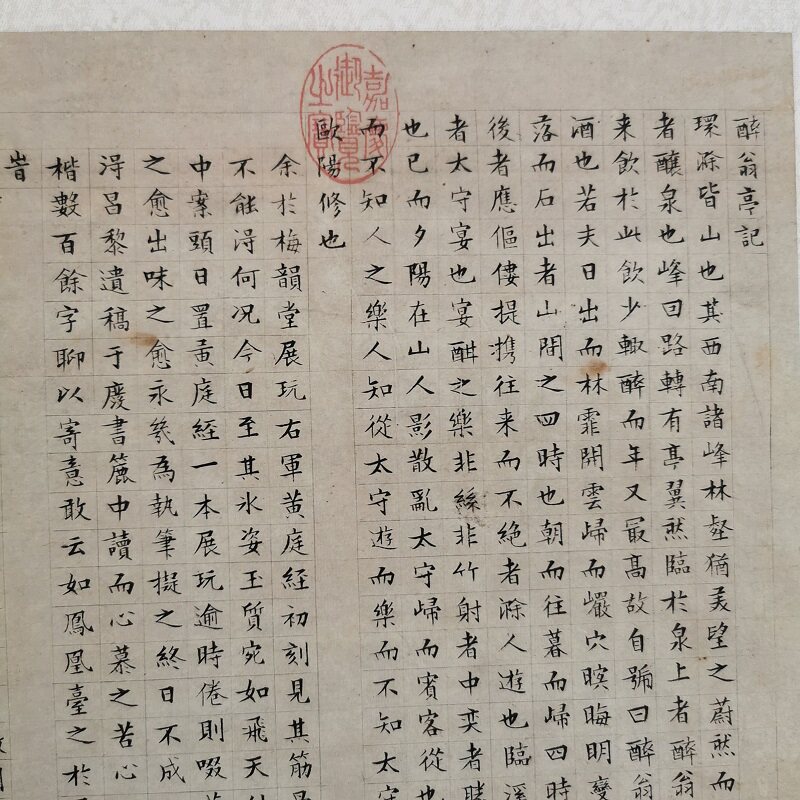 嘉慶御覽之寶
醉翁亭記
環滁皆山也其西南諸峰林壑猶美望之蔚然而
者釀泉也峰回路轉有亭翼然臨於泉上者醉翁
来飲於此飲少輒醉而年又最高故自號曰醉翁
酒也若夫日出而林霏開雲歸而巖穴暝晦明變
落而石出者山間之四時也朝而往暮而歸四時
後者應傴僂提攜往来而不絶者滁人遊也臨溪
者太守宴也宴酣之樂非絲非竹射者中奕者勝
也已而夕陽在山人影散亂太守歸而賓客從也
而不知人之樂人知從太守遊而樂而不知太守
歐陽修也
余於梅韻堂展玩右軍黄庭經初刻見其筋
不能淂何况今日至其氷姿玉質宛如飛天
中案頭日置黄庭經一本展玩逾時倦則啜
之愈出味之愈永幾為執筆擬之終日不成
淂吕黎遺稿于慶書簏中讀而心慕之苦心
楷數百餘字聊以寄意敢云如鳳凰臺之於
旹